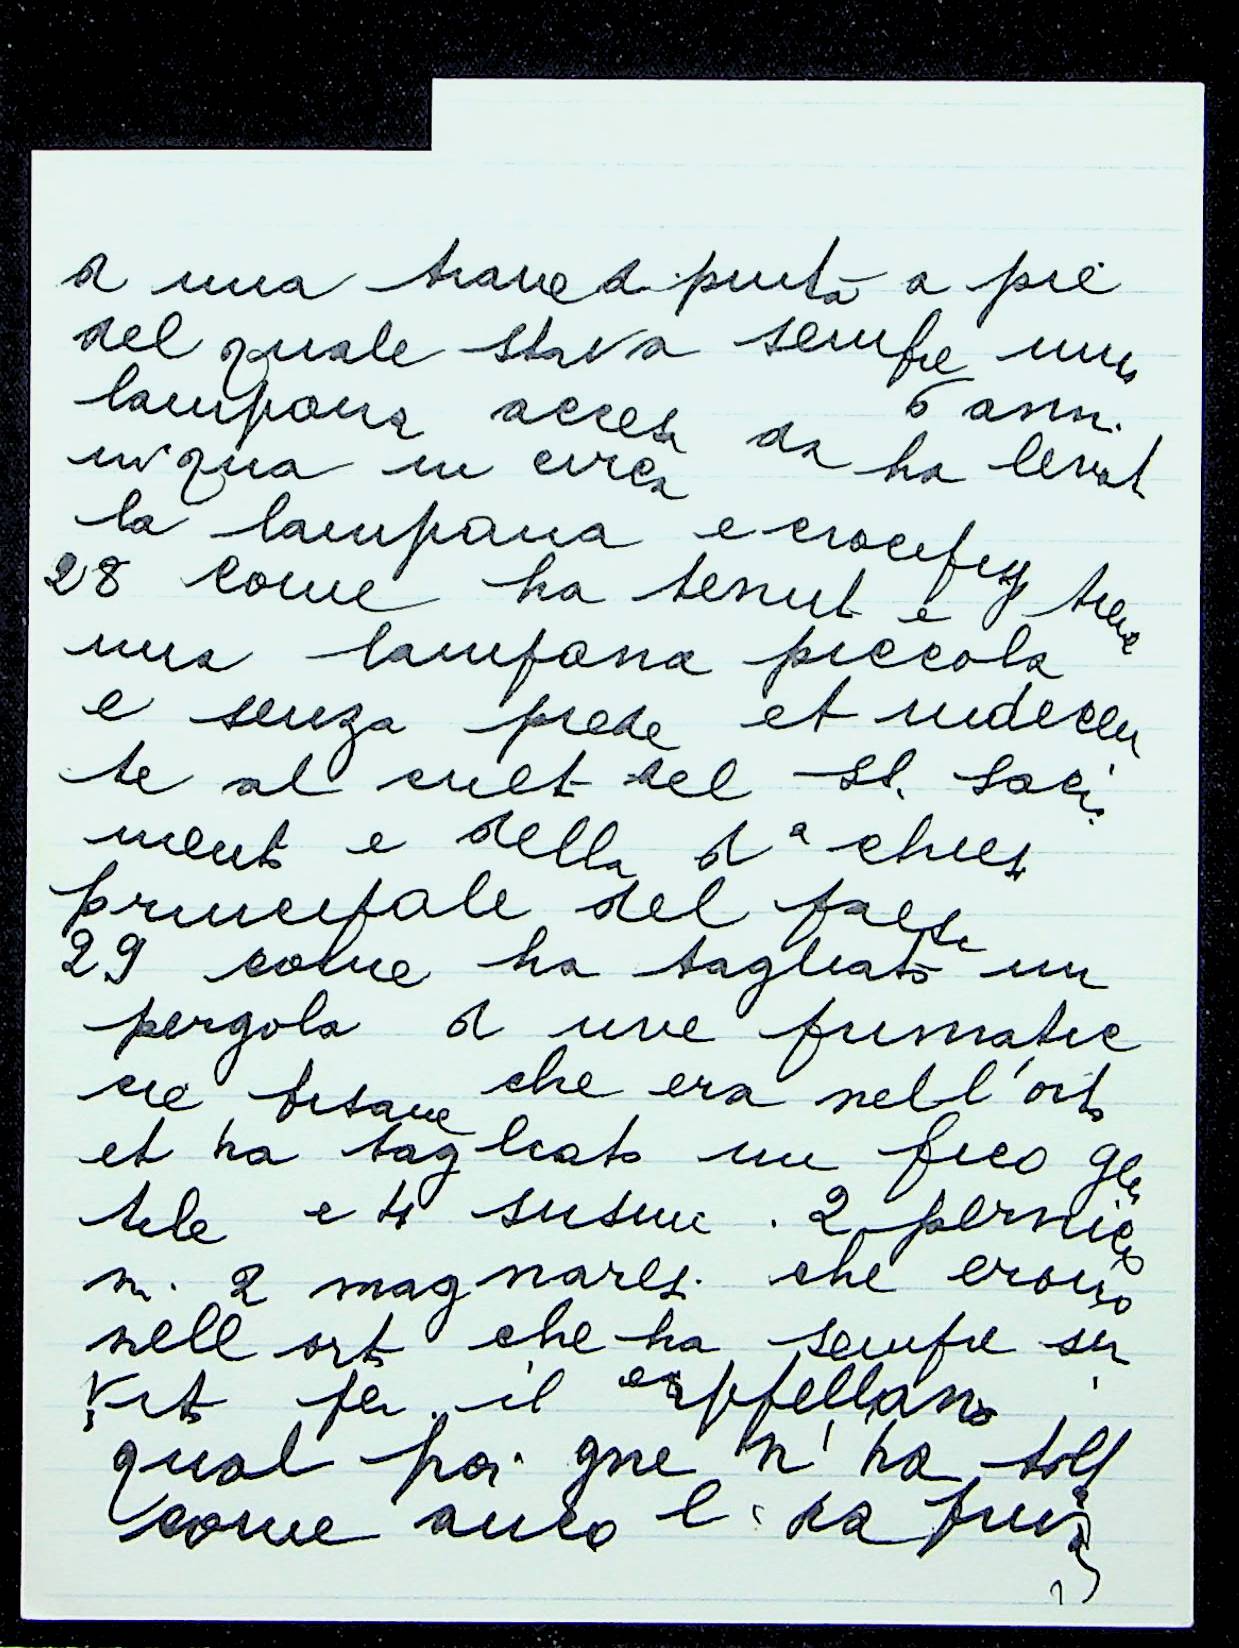 d una trave dipinta a piè
del quale stava sempre una
lampana accesa da 6 anni
in qua in circa ha levat
la lampana e crocefisso
28 come ha tenut e tiene
una lampana piccola
e senza piede et indecen
te al cult del SS. Sacra
mento e della dª chiesa
principale del paese
29 come ha tagliato un
pergola d uve
che era nell'orto
et ha tagliato un fico gen
tile e 4 susini. 2
n. 2 che erano
nell ort che ha sempre ser
vito per il cappellano
qual poi gne n'ha tolt
come anco l